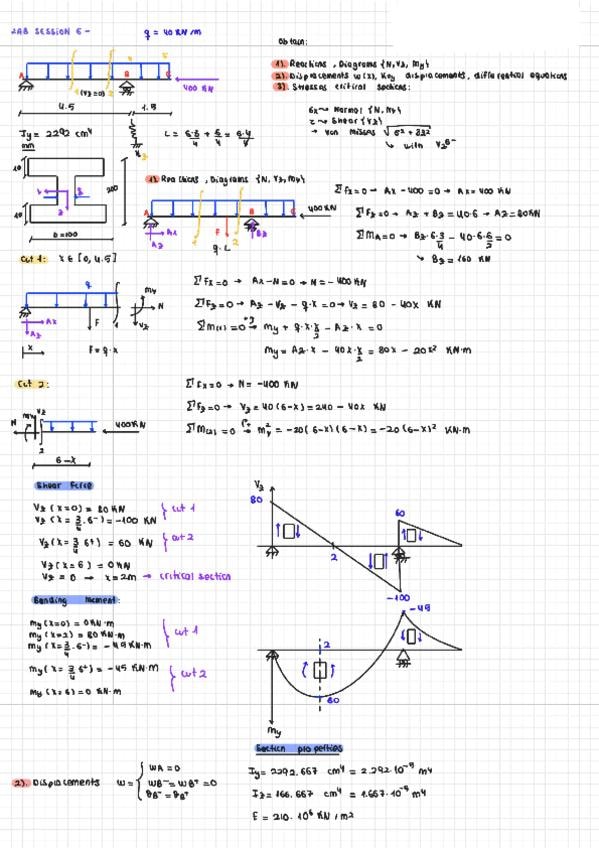 LAB SESSION 6 -
q = 40 KN/m
Obtain:
1). Reactions, Diagrams {N, Vz, My}
2). Displacements w(x), Key displacements, differential equations
3). Stresses critical sections:
σx → Normal {N, My}
τ → Shear {Vz}
→ Von Misses √σ² + 3τ²
↳ with Vz B-
A
B
C
(Vz=0)
400 KN
4.5
1.5
Iy = 2292 cm⁴
mm
10
200
10
b=100
1). Reactions, Diagrams {N, Vz, My}
A
B
C
400 KN
Az
Ax
F
Bz
q·L
ΣFx=0 → Ax - 400 = 0 → Ax = 400 KN
ΣFz=0 → Az + Bz = 40·6 → Az = 80KN
ΣMA=0 → Bz·6·3/4 - 40·6·6/2 = 0
↳ Bz = 160 KN
Cut 1: x ∈ [0, 4.5]
q
My
N
Vz
Ax
Az
F
x
F = q·x
ΣFx=0 → Ax-N=0 → N = -400 KN
ΣFz=0 → Az - Vz - q·x = 0 → Vz = 80 - 40x KN
ΣM(1)=0 → My + q·x·x/2 - Az·x = 0
My = Az·x - 40x·x/2 = 80x - 20x² KN·m
Cut 2:
N
My
Vz
400KN
2
6-x
ΣFx=0 → N = -400 KN
ΣFz=0 → Vz = 40(6-x) = 240 - 40x KN
ΣM(2)=0 → My = -20(6-x)(6-x) = -20(6-x)² KN·m
Shear Force
Vz (x=0) = 80 KN
Vz (x = 3/4·6⁻) = -100 KN
} cut 1
Vz (x = 3/4 6⁺) = 60 KN
} cut 2
Vz (x=6) = 0 KN
Vz = 0 → x = 2m → critical section
Vz
80
60
2
-100
Bending Moment:
My (x=0) = 0 KN·m
My (x=2) = 80 KN·m
My (x = 3/4·6⁻) = -45 KN·m
} cut 1
My (x = 3/4 6⁺) = -45 KN·m
} cut 2
My (x=6) = 0 KN·m
-45
2
80
My
Section properties
2). Displacements w =
WA = 0
WB⁻ = WB⁺ = 0
θB⁻ = θB⁺
Iy = 2292.667 cm⁴ = 2.292·10⁻⁵ m⁴
Iz = 166.667 cm⁴ = 1.667·10⁻⁶ m⁴
E = 210·10⁶ KN/m²